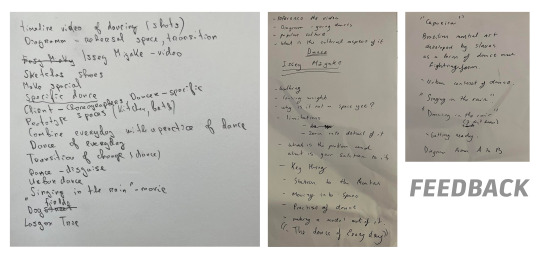 timeline video of dancing (shots)
Diagramm - rehearsal space, transition
Issey Miyake - video
Sketches shoes
Make special
Specific dance
Client - Choreographers Dancer - specific
Prototype spaces (kitchen, beds)
Combine everyday with a practice of dance
Dance of everyday
Transition of change (dance)
Dance - disguise
Urban dance
"Singing in the rain" - movie
Dog fields
- References the video
- Diagram - going dance
- popular cultural
- What is the cultural aspect of it
Dance
Issey Miyake
- Walking
- Carrying weight
- Why is it not - space specific?
- limitations
- Zoom into detail of it
- What is the problem and what is your solution to it
- Key things
- Station to the Market
- Moving into space
- Practice of dance
- making a model out of it
"The dance of Everyday"
"Capoeira"
Brazilian martial art
developed by slaves
as a form of dance and
fighting form
- Urban context of dance
"Singing in the rain"
"Dancing in the rain"
- Getting ready
Diagram from A to B
FEEDBACK